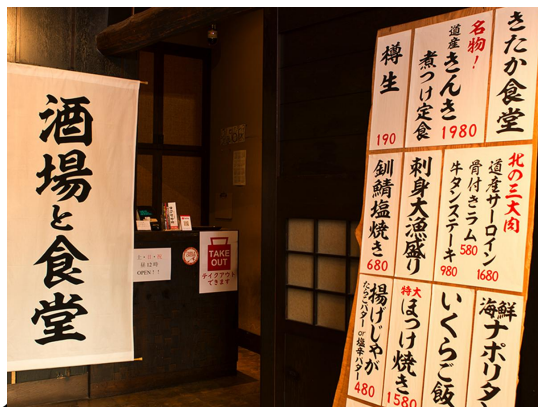 酒場と食堂
土・日・祝
昼12時
OPEN!!
TAKE
OUT
テイクアウト
できます
きたか食堂
名物!
道産きんき
煮つけ定食
1980
樽生
190
北の三大肉
道産サーロイン
1680
骨付きラム
580
牛タンステーキ
980
刺身大漁盛り
釧鯖塩焼き
680
海鮮
ナポリタ
いくらご飯
特大
ほっけ焼き
1580
揚げじゃが
たらこバターor塩辛バター
480